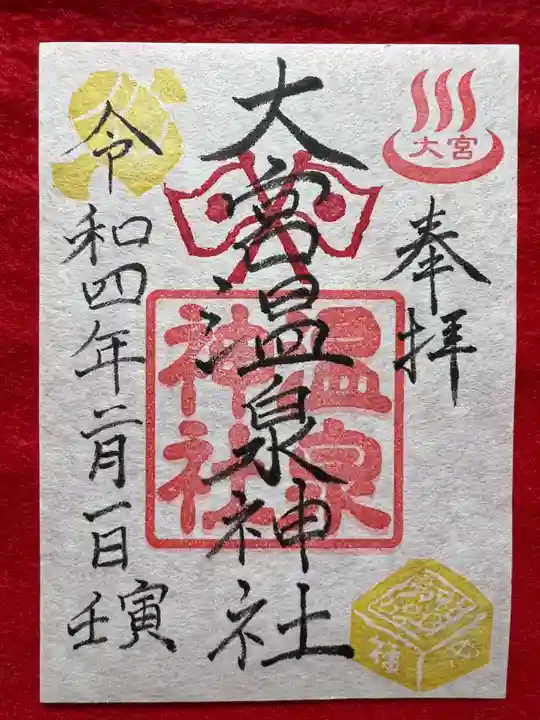 大宮
奉拝
大宮温泉神社
温泉
神社
令和四年二月一日
壬寅